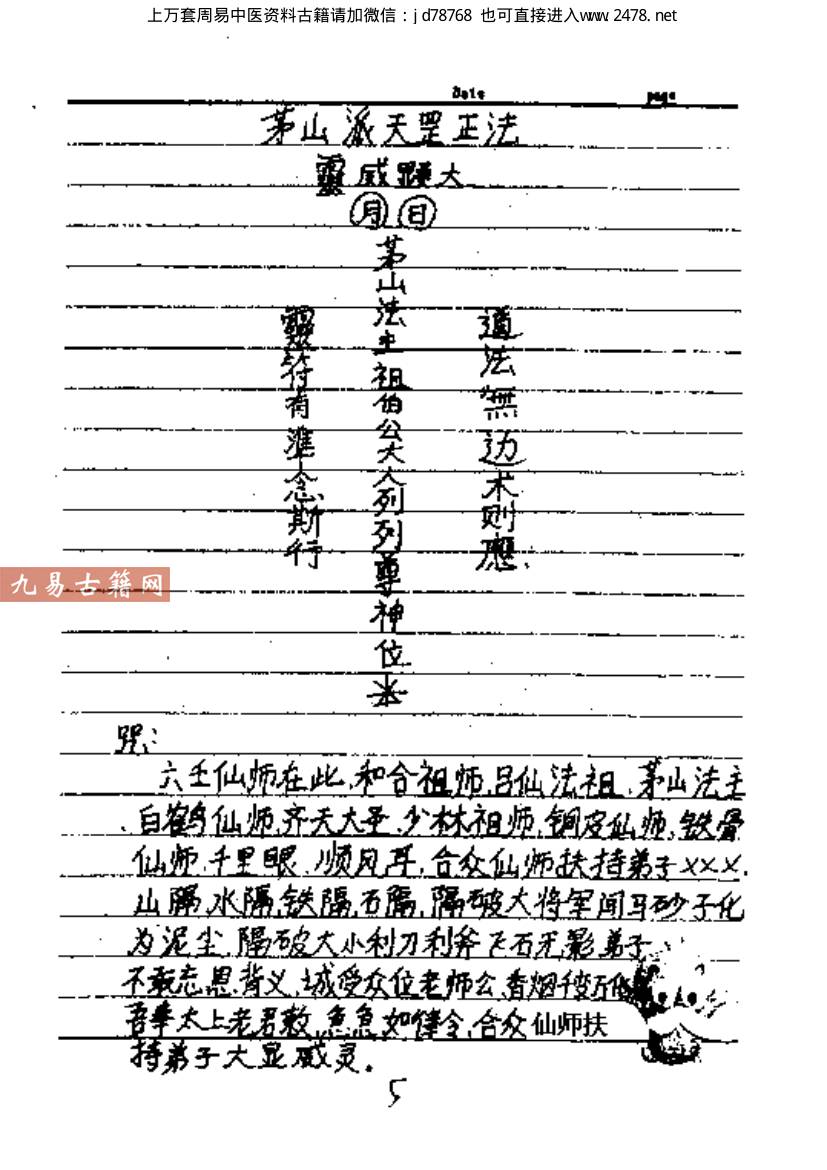 上万套周易中医资料古籍请加微信：jd78768 也可直接进入www.2478.net
Date page
茅山派天罡正法
靈威顯大
月 日
道法無边术则應.
茅山法主祖伯公大人列列尊神位
靈符有準念斯行
九易古籍网
咒:
六壬仙师在此,和合祖师,吕仙法祖,茅山法主
白鹤仙师,齐天大圣,少林祖师,铜皮仙师,铁骨
仙师,千里眼,顺风耳,合众仙师扶持弟子×××,
山隔,水隔,铁隔,石隔,隔破大将军间马砂子化
为泥尘,隔破大小利刀利斧飞石无影,弟子
不敢忘恩背义,城受众位老师公,香烟千变万化
吾奉太上老君敕,急急如律令,合众仙师扶
持弟子大显威灵.
5